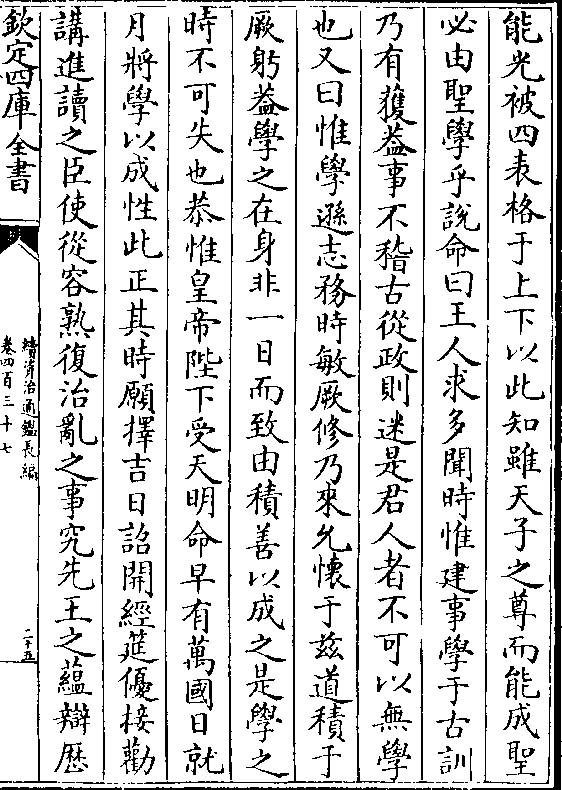 能光被四表格于上下以此知雖天子之尊而能成聖
必由聖學乎說命曰王人求多聞時惟建事學于古訓
乃有獲葢事不稽古從政則迷是君人者不可以無學
也又曰惟學遜志務時敏厥修乃來允懷于兹道積于
厥躬葢學之在身非一日而致由積善以成之是學之
時不可失也恭惟皇帝陛下受天明命早有萬國日就
月將學以成性此正其時願擇吉日詔開經筵優接勸
講進讀之臣使從容熟復治亂之事究先王之蘊辯歴
欽定四庫全書
續資治通鑑長編
卷四百三十七
二十五